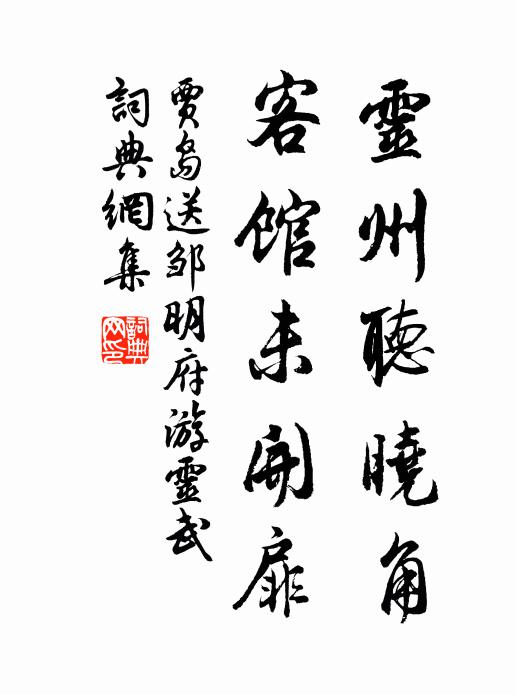 靈州聽曉角
客館未開扉
賈島送邹明府游靈武
詞典網集
詞典网印